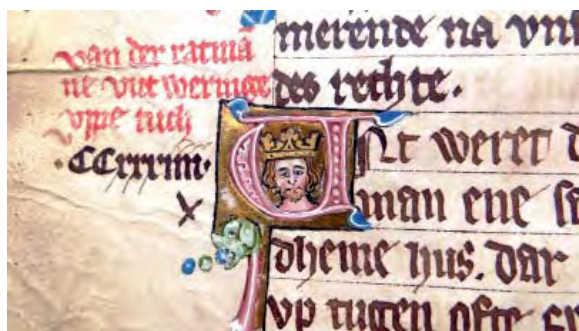 van der ratmā
ne vut weringe
vppe tuch
·CCxxxiiii·
merende na vnt
des rechte.
Ut weret d
man ene sa
dheme hus. dar
vp tugen ofte